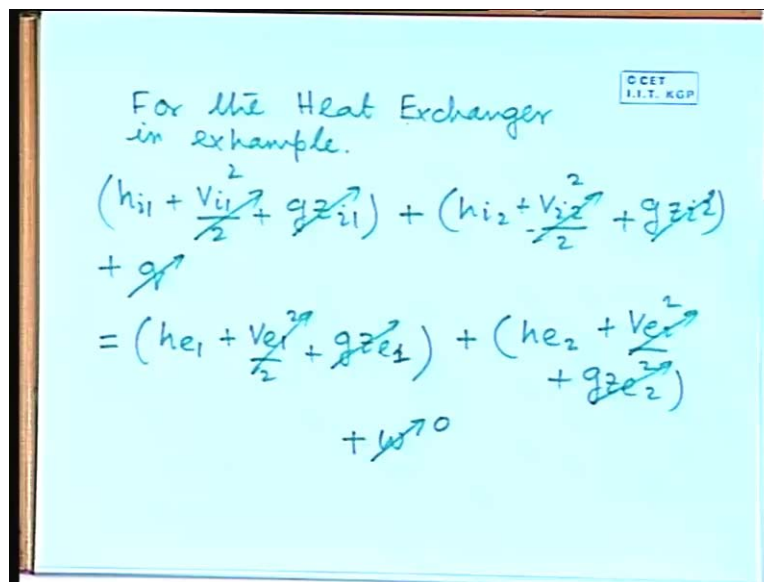 C CET
I.I.T. KGP
For the Heat Exchanger
in exhample.
(hi1 + Vi1²/2 + gzi1) + (hi2 + Vi2²/2 + gzi2)
+ q
= (he1 + Ve1²/2 + gze1) + (he2 + Ve2²/2
+ gze2)
+ w 0